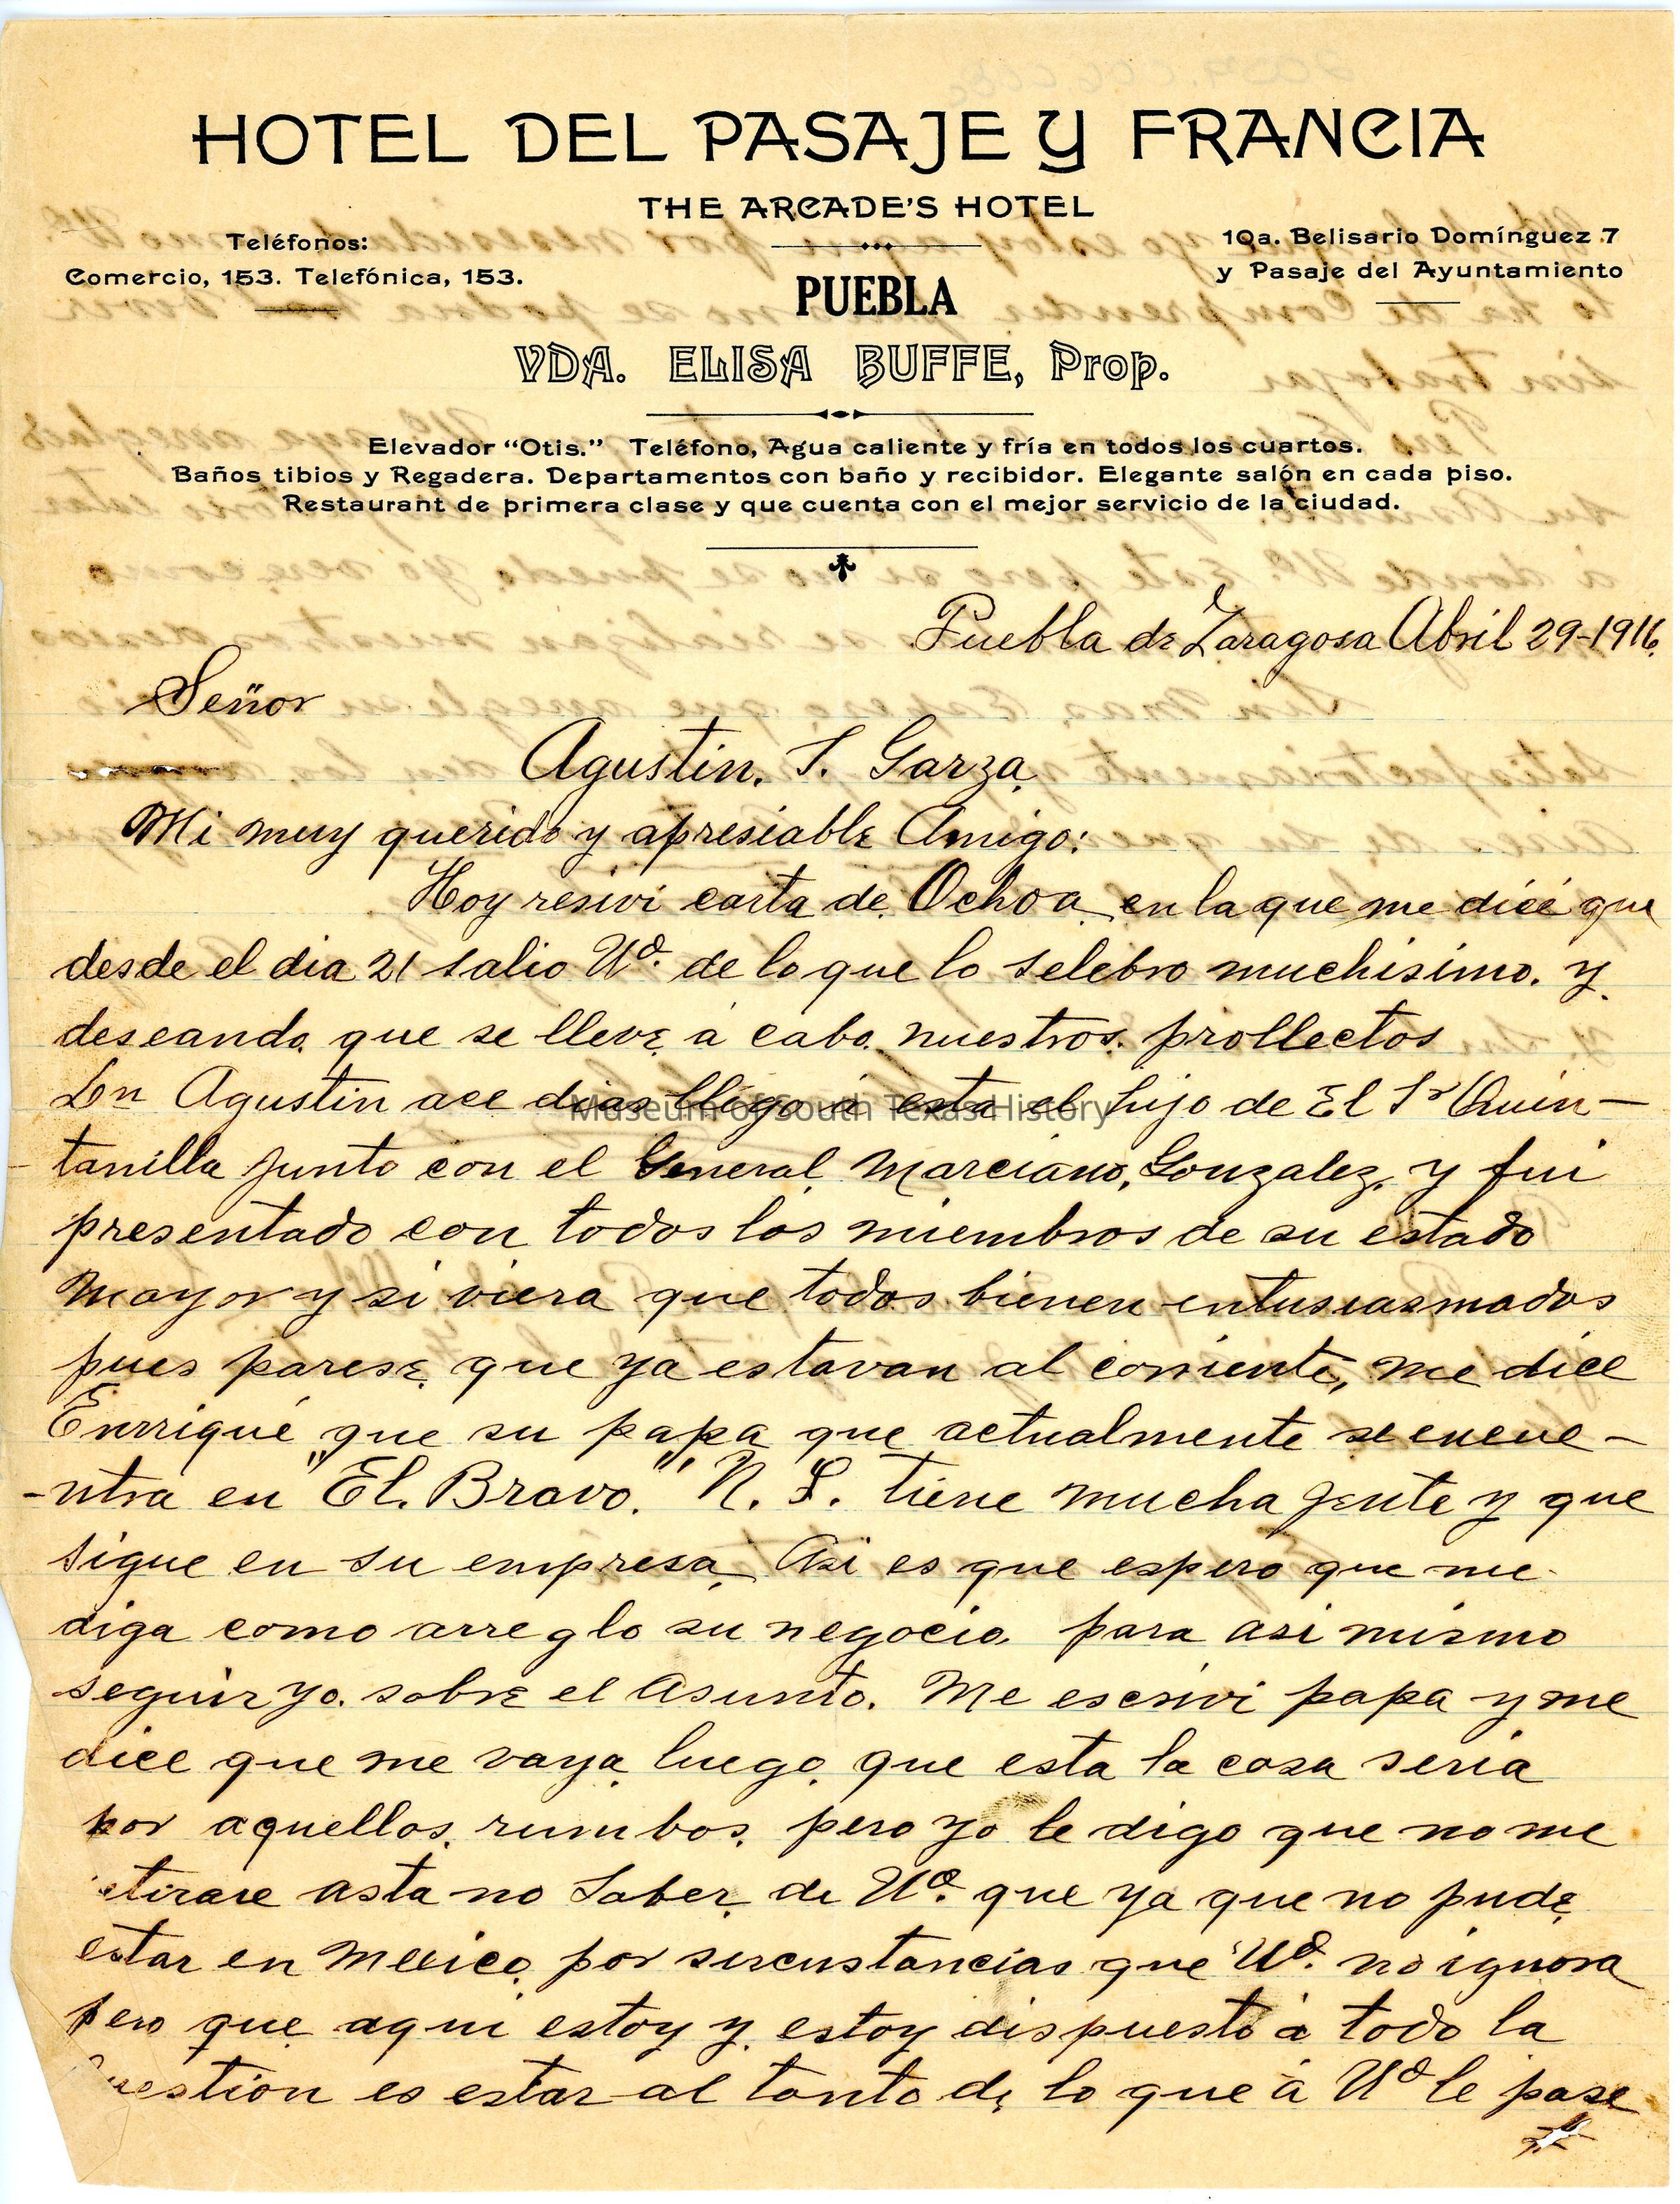 HOTEL DEL PASAJE Y FRANCIA
THE ARCADE'S HOTEL
Teléfonos:
Comercio, 153. Telefónica, 153.
10a. Belisario Domínguez 7
y Pasaje del Ayuntamiento
PUEBLA
VDA. ELISA BUFFE, Prop.
Elevador "Otis." Teléfono, Agua caliente y fría en todos los cuartos.
Baños tibios y Regadera. Departamentos con baño y recibidor. Elegante salón en cada piso.
Restaurant de primera clase y que cuenta con el mejor servicio de la ciudad.
Puebla de Zaragosa Abril 29-1916.
Señor
Agustin. S. Garza.
Mi muy querido y apresiable Amigo:
Hoy resivi carta de Ochoa en la que me dice que
desde el dia 21 salio Ud. de lo que lo selebro muchisimo. y
deseando que se lleve a cabo nuestros prollectos
Dn Agustin ace dias llego a esta el hijo de El Sr Quin-
-tanilla junto con el General Marciano, Gonzalez, y fui
presentado con todos los miembros de su estado
mayor y si viera que todos bienen entusiasmados
pues parese que ya estavan al corriente, me dice
Enrrique que su papa que actualmente se encue-
-ntra en "El. Bravo." N. L. tiene mucha jente y que
sigue en su empresa. Asi es que espero que me
diga como arreglo su negocio para asi mismo
seguir yo sobre el asunto. Me escrivi papa y me
dice que me vaya luego que esta la cosa seria
por aquellos rumbos, pero yo le digo que no me
etirare asta no Saber de Ud. que ya que no pude
estar en Mexico por sircustancias que Ud. no ignora
pero que aqui estoy y estoy dispuesto á todo la
uestion es estar al tanto de lo que á Ud le pase
Museum of South Texas History